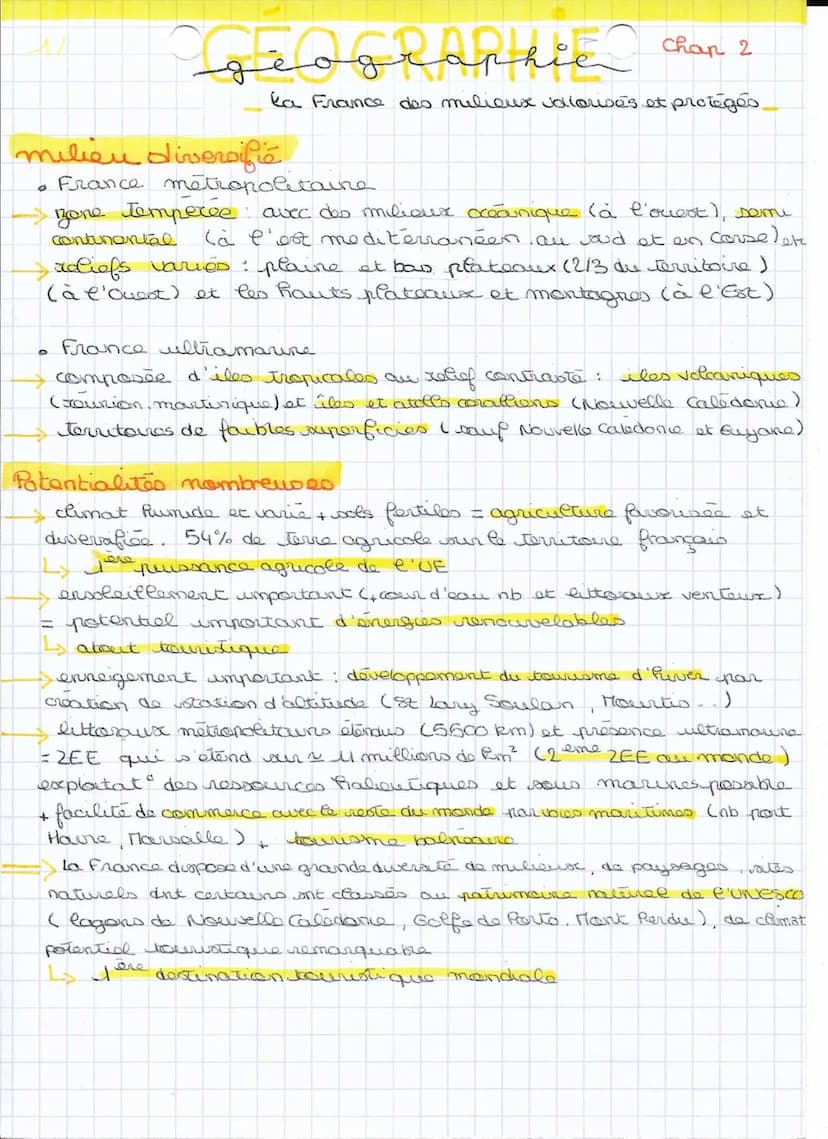 1/
GÉOGRAPHIE
géographie
Chap 2
La France des milieux valorisés et protégés
milieu diversifié
• France métropolitaine
→ zone tempérée : avec des milieux océanique (à l'ouest), semi
continental (à l'est mediterranéen au sud et en Corse) etc
→ reliefs variés : plaine et bas plateaux (2/3 du territoire)
(à l'Ouest) et les hauts plateaux et montagnes (à l'Est)
• France ultramarine
→ composée d'iles tropicales au relief contrasté : iles volcaniques
(réunion, martinique) et iles et atolls coralliens (Nouvelle Calédonie)
→ territoires de faibles superficies (sauf Nouvelle Calédonie et Guyane)
Potentialités nombreuses
→ climat humide et varié + sols fertiles = agriculture favorisée et
diversifiée. 54% de terre agricole sur le territoire français
↳ 1ère puissance agricole de l'UE
→ ensoleillement important (+ cour d'eau nb et littoraux venteux)
= potentiel important d'énergies renouvelables
↳ atout touristique
→ enneigement important : développement du tourisme d'hiver par
création de station d'altitude (St Lary Soulan, Mourtis...)
→ littoraux métropolitains étendus (5500 km) et présence ultramarine
= ZEE qui s'étend sur ≈ 11 millions de km² (2ème ZEE au monde)
exploitat° des ressources halieutiques et sous marines possible
+ facilité de commerce avec le reste du monde par voies maritimes (nb port
Havre, Marseille) + tourisme balnéaire
⇒ La France dispose d'une grande diversité de milieux, de paysages, sites
naturels dnt certains snt classés au patrimoine naturel de l'UNESCO
(lagons de Nouvelle Calédonie, Golfe de Porto, Mont Perdu), de climat
potentiel touristique remarquable
↳ 1ère destination touristique mondiale